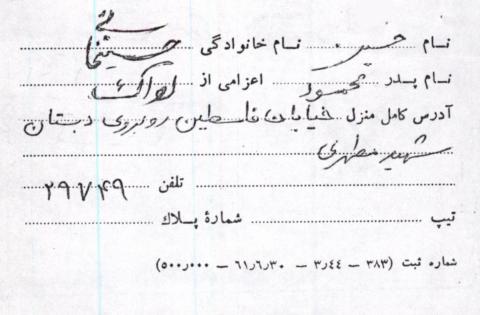 نام حسین نام خانوادگی حسینخانی
نام پدر محمود اعزامی از اراک
آدرس کامل منزل خیابان فلسطین روبروی دبستان
شهید مطهری
تلفن ۲۹۷۴۹
تیپ شمارهٔ پلاك
شماره ثبت (۳۸۳ – ۳٫۴۴ – ۶۱٫۶٫۳۰ – ۵۰۰٫۰۰۰)